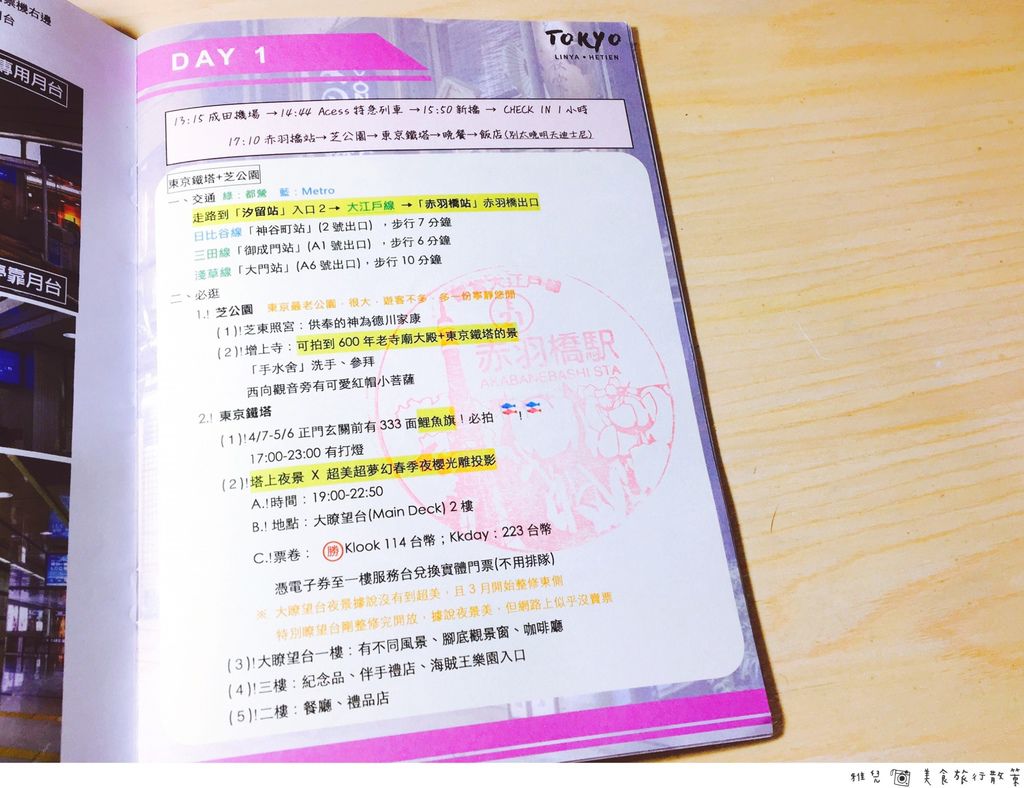 票機右邊
月台
專用月台
停靠月台
DAY 1
TOKYO
LINYA • HETIEN
13:15 成田機場 → 14:44 Acess 特急列車 → 15:50 新橋 → CHECK IN 1 小時
17:10 赤羽橋站→芝公園→東京鐵塔→晚餐→飯店(別太晚明天迪士尼)
東京鐵塔+芝公園
一、交通 綠:都營 藍:Metro
走路到「汐留站」入口 2→ 大江戶線 →「赤羽橋站」赤羽橋出口
日比谷線「神谷町站」(2 號出口) ,步行 7 分鐘
三田線「御成門站」(A1 號出口),步行 6 分鐘
淺草線「大門站」(A6 號出口),步行 10 分鐘
二、必逛
1.! 芝公園 東京最老公園,很大,遊客不多,多一份寧靜悠閒
(1)!芝東照宮:供奉的神為德川家康
(2)!增上寺:可拍到 600 年老寺廟大殿+東京鐵塔的景
「手水舍」洗手、參拜
西向觀音旁有可愛紅帽小菩薩
2.! 東京鐵塔
(1)!4/7-5/6 正門玄關前有 333 面鯉魚旗!必拍 !
17:00-23:00 有打燈
(2)!塔上夜景 X 超美超夢幻春季夜櫻光雕投影
A.!時間:19:00-22:50
B.! 地點:大瞭望台(Main Deck) 2 樓
C.!票卷: 勝 Klook 114 台幣;Kkday:223 台幣
憑電子券至一樓服務台兌換實體門票(不用排隊)
※ 大瞭望台夜景據說沒有到超美,且 3 月開始整修東側
特別瞭望台剛整修完開放,據說夜景美,但網路上似乎沒賣票
(3)!大瞭望台一樓:有不同風景、腳底觀景窗、咖啡廳
(4)!三樓:紀念品、伴手禮店、海賊王樂園入口
(5)!二樓:餐廳、禮品店
大江戸線
赤羽橋駅
AKABANEBASHI STA
雅兒 美食旅行散策